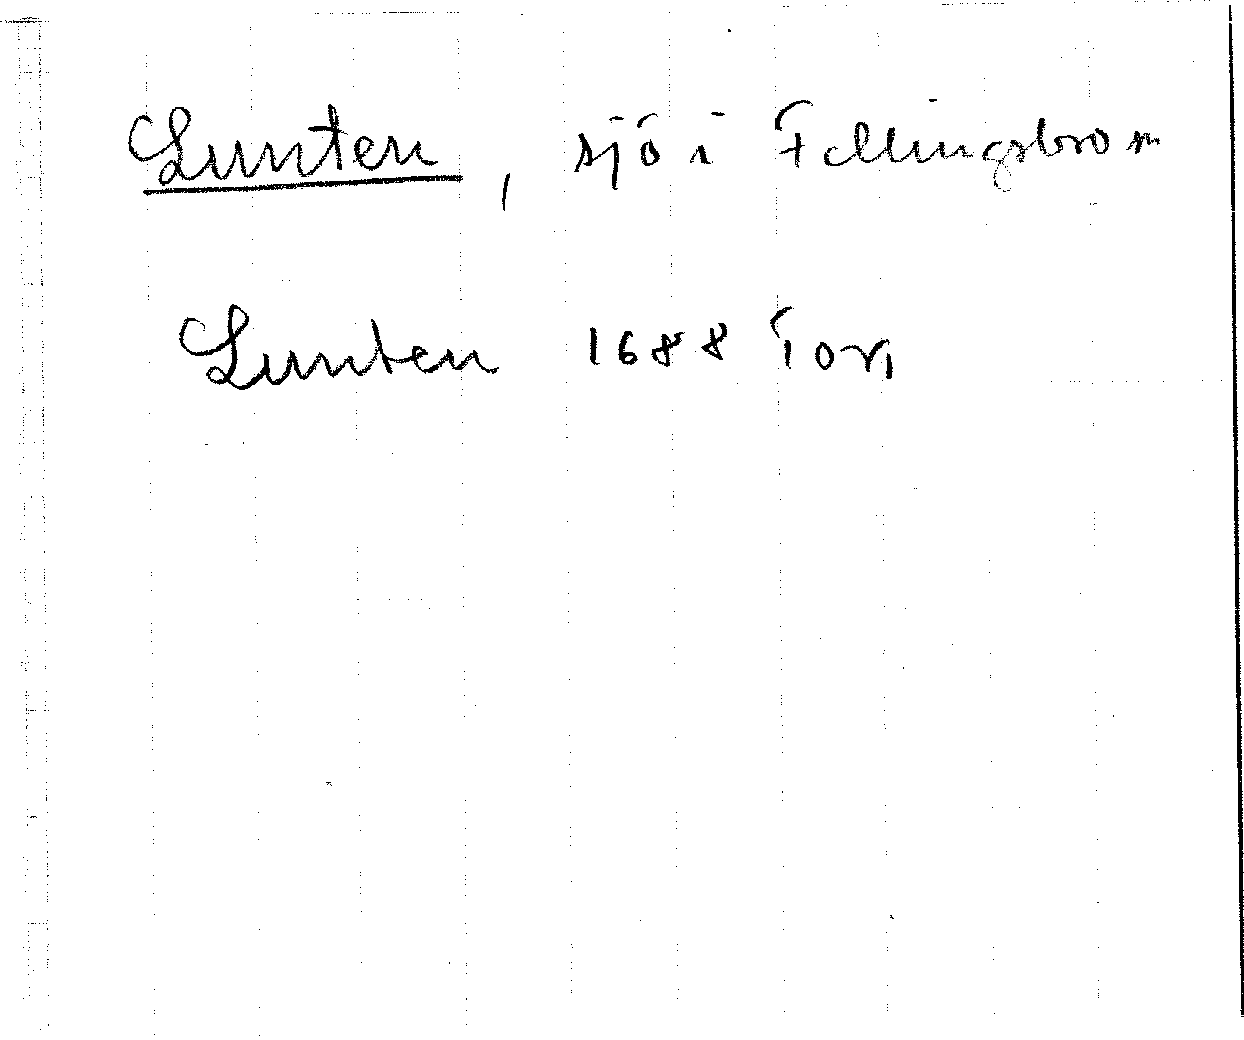 Lunten, sjö i Fellingsbro sn
Lunten 1688 jorj